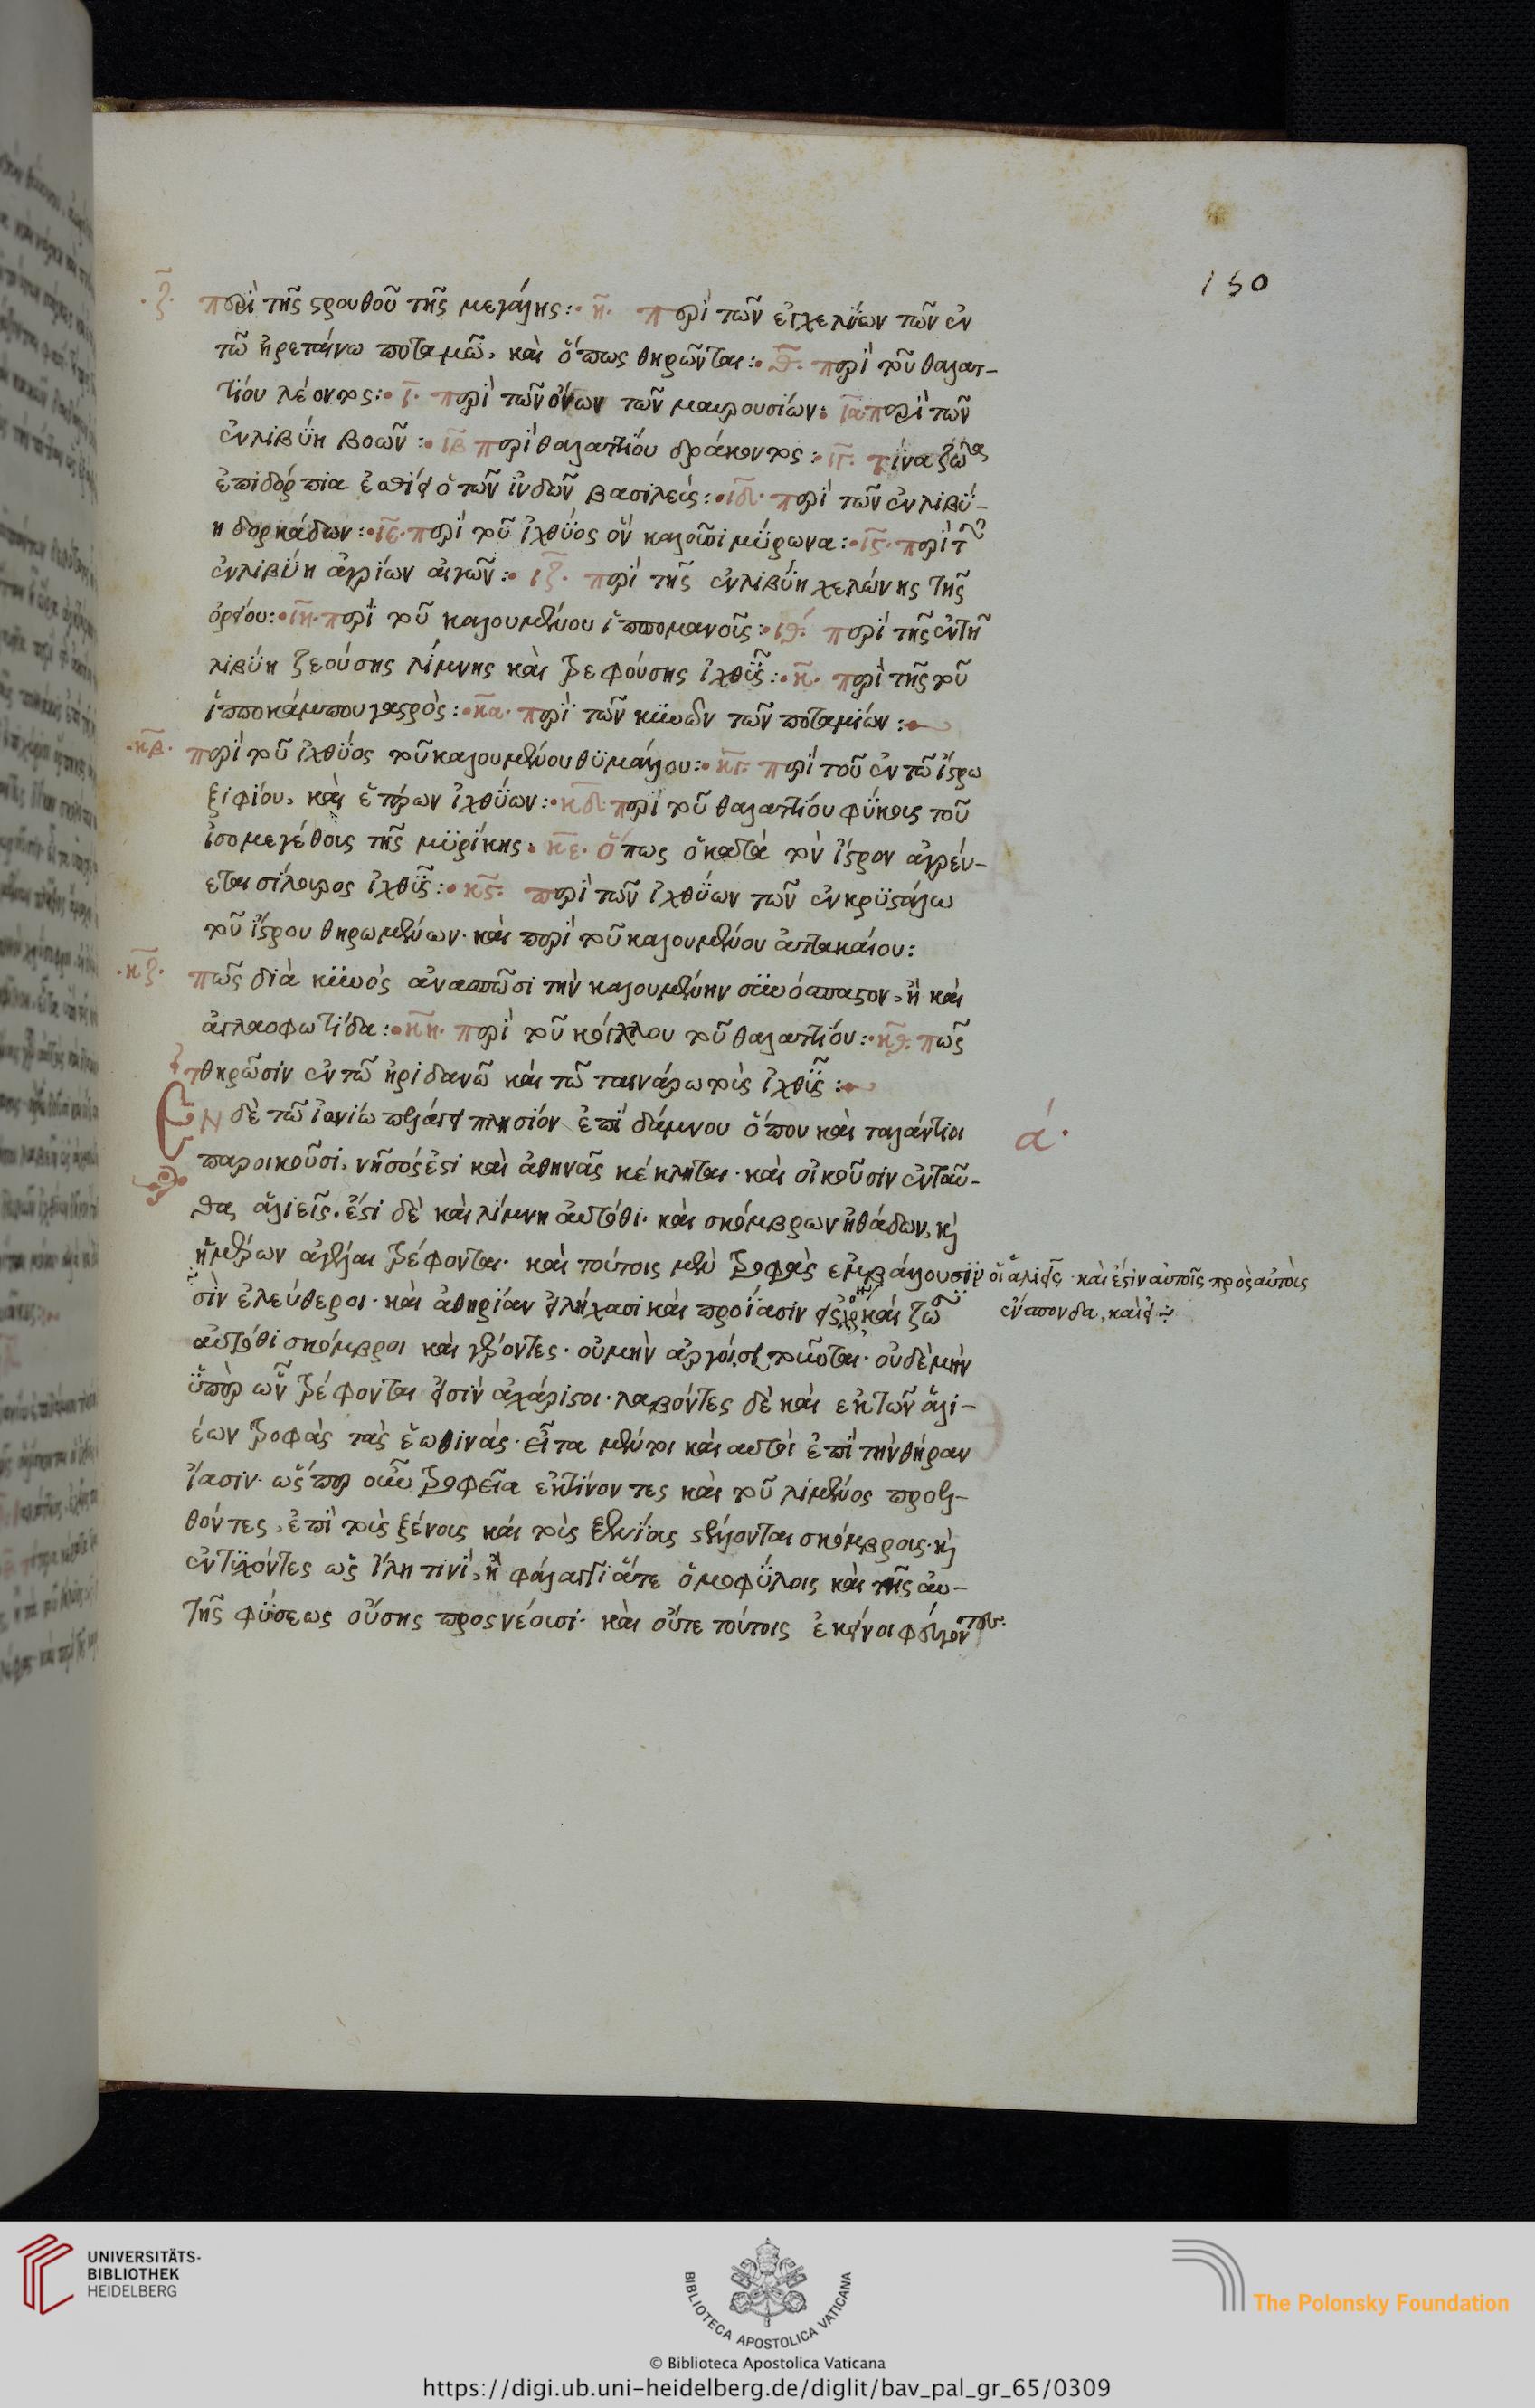 150
·ζ· περὶ τῆς στρουθοῦ τῆς μεγάλης:· η· περὶ τῶν ἐγχελύων τῶν ἐν
τῶ ἠρεταίνω ποταμῶ, καὶ ὅπως θηρῶνται:· θ· περὶ τοῦ θαλατ-
τίου λέοντος:· ι· περὶ τῶν ὄνων τῶν μαυρουσίων: ια περὶ τῶν
ἐν λιβύη βοῶν:· ιβ περὶ θαλαττίου δράκοντος:· ιγ· τίνα ζῶα
ἐπιδόρπια ἐσθίει ὁ τῶν ἰνδῶν βασιλεύς:· ιδ· περὶ τῶν ἐν λιβύ-
η δορκάδων:· ιε· περὶ τοῦ ἰχθύος ὃν καλοῦσι μύρωνα:· ις· περὶ τῶν
ἐν λιβύη ἀγρίων αἰγῶν:· ιζ· περὶ τῆς ἐν λιβύη χελώνης τῆς
ὀρείου:· ιη· περὶ τοῦ καλουμένου ἱππομανοῦς:· ιθ· περὶ τῆς ἐν τῆ
λιβύη ζεούσης λίμνης καὶ τρεφούσης ἰχθῦς:· κ· περὶ τῆς τοῦ
ἱπποκάμπου γαστρὸς:· κα· περὶ τῶν κυνῶν τῶν ποταμίων:·
·κβ· περὶ τοῦ ἰχθύος τοῦ καλουμένου θυμάλου:· κγ· περὶ τοῦ ἐν τῶ ἴστρω
ξιφίου, καὶ ἑτέρων ἰχθύων:· κδ· περὶ τοῦ θαλαττίου φύκους τοῦ
ἰσομεγέθους τῆς μυρίκης. κε· ὅπως ὁ κατὰ τὸν ἴστρον ἀγρεύ-
εται σίλουρος ἰχθῦς:· κς· περὶ τῶν ἰχθύων τῶν ἐν κρυστάλω
τοῦ ἴστρου θηρωμένων· καὶ περὶ τοῦ καλουμένου ἀντακαίου:
·κζ· πῶς διὰ κυνὸς ἀνασπῶσι τὴν καλουμένην κυνόσπαστον, ἢ καὶ
ἀγλαοφωτίδα:· κη· περὶ τοῦ κόχλου τοῦ θαλαττίου:· κθ· πῶς
θηρῶσιν ἐν τῶ ἠριδανῶ καὶ τῶ ταινάρω τοὺς ἰχθῦς:·
ΕΝ δὲ τῶ ἰονίω πελάγει πλησίον ἐπιδάμνου ὅπου καὶ ταλάντιοι
ά·
παροικοῦσι, νῆσός ἐστι καὶ ἀθηνᾶς κέκληται· καὶ οἰκοῦσιν ἐνταῦ-
θα ἁλιεῖς. ἔστι δὲ καὶ λίμνη αὐτόθι· καὶ σκόμβρων ἠθάδων, καὶ
ἡμέρων ἀγέλαι τρέφονται· καὶ τούτοις μὲν τροφὰς ἐμβάλουσιν οἱ ἁλιεῖς· καὶ ἔστιν αὐτοῖς πρὸς αὐτοὺς
ἔνσπονδα, καὶ εἰ
σὶν ἐλεύθεροι· καὶ ἀθηρίαν εἰλήχασι καὶ προΐασιν καὶ ζῶσιν
αὐτόθι σκόμβροι καὶ γέροντες· οὐ μὴν ἀργοὶ σιτοῦνται· οὐδὲ μὴν
ὑπὲρ ὧν τρέφονται εἰσὶν ἀχάριστοι· λαβόντες δὲ καὶ ἐκ τῶν ἁλι-
έων τροφὰς τὰς ἑωθινάς· εἶτα μέντοι καὶ αὐτοὶ ἐπὶ τὴν θήραν
ἴασιν· ὥσπερ οὖν τροφεῖα ἐκτίνοντες καὶ τοῦ λιμένος προελ-
θόντες, ἐπὶ τοὺς ξένους καὶ τοὺς στέλλονται σκόμβρους· καὶ
ἐντυχόντες ὡς ἴλη τινὶ, ἢ φάλαγγι ἅτε ὁμοφύλοις καὶ τῆς αὐ-
τῆς φύσεως οὔσης προσνέουσι· καὶ οὔτε τούτοις ἐκεῖνοι φεύγοντες·
UNIVERSITÄTS-
BIBLIOTHEK
HEIDELBERG
BIBLIOTECA APOSTOLICA VATICANA
© Biblioteca Apostolica Vaticana
The Polonsky Foundation
https://digi.ub.uni-heidelberg.de/diglit/bav_pal_gr_65/0309